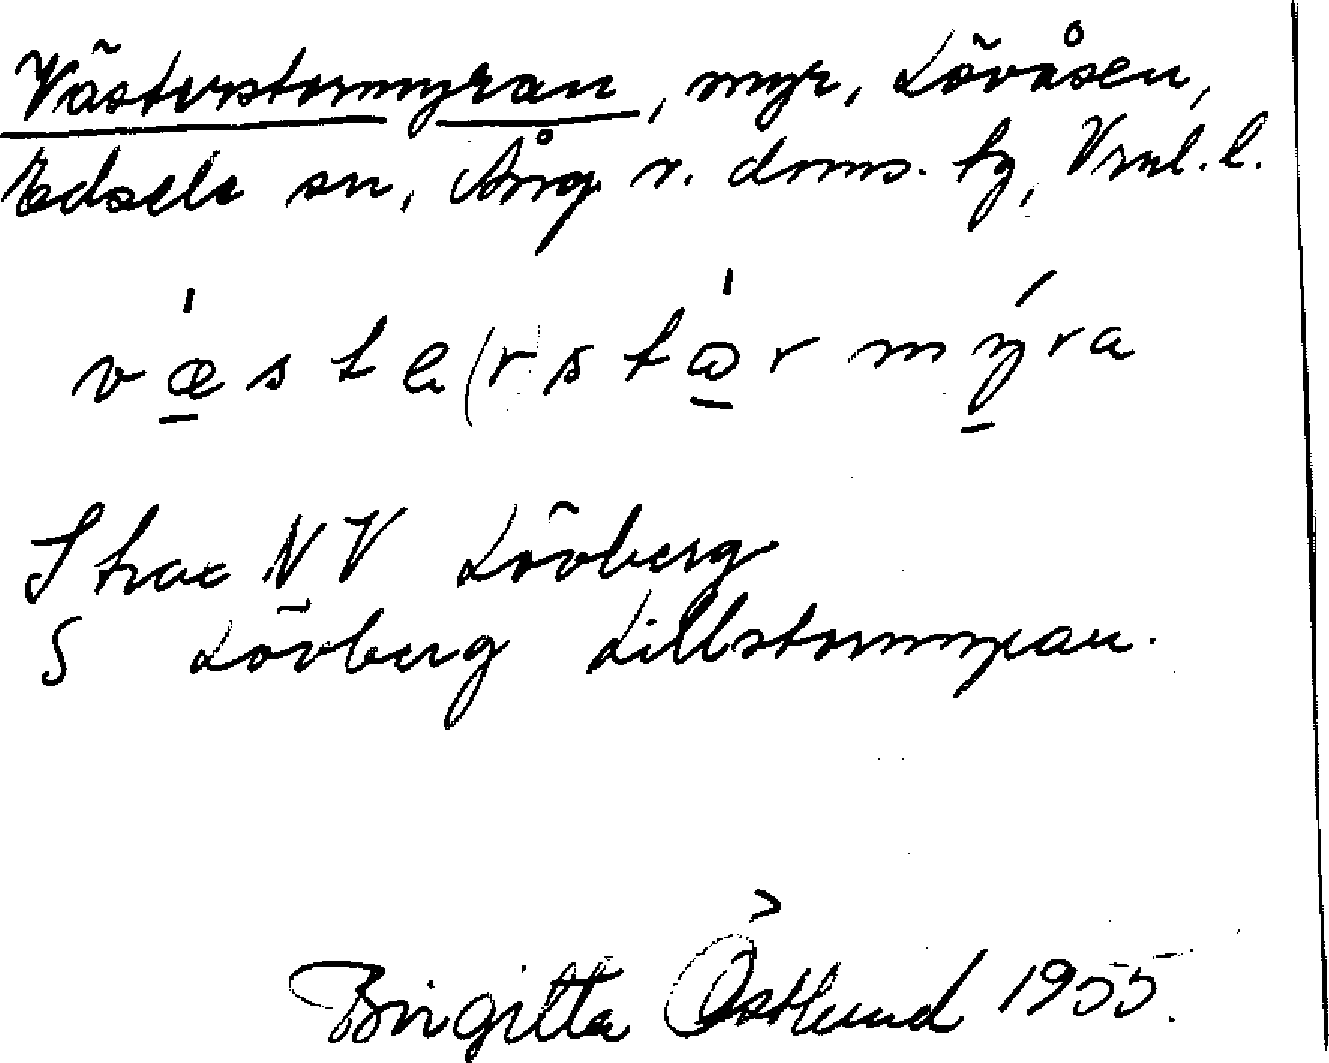 Västerstormyran, myr, Lövåsen,
Edsele sn, Ång. v. doms. tg, Vrnl. l.
væste(rstår mýra
Strax NV Lövberg
S Lövberg Lillstormyran.
Birgitta Östlund 1955.